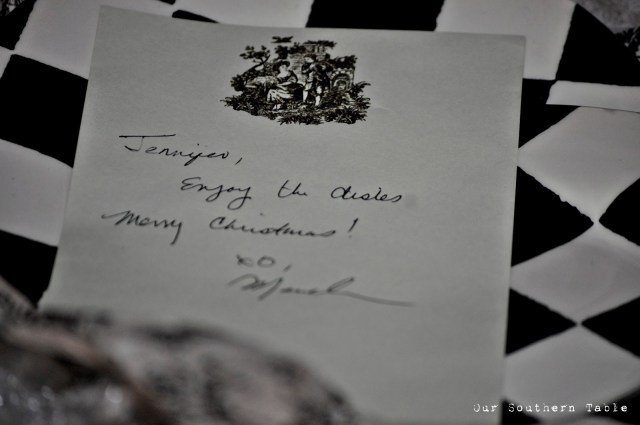 Jennifer,
Enjoy the dishes
Merry Christmas!
XO,
Our Southern Table